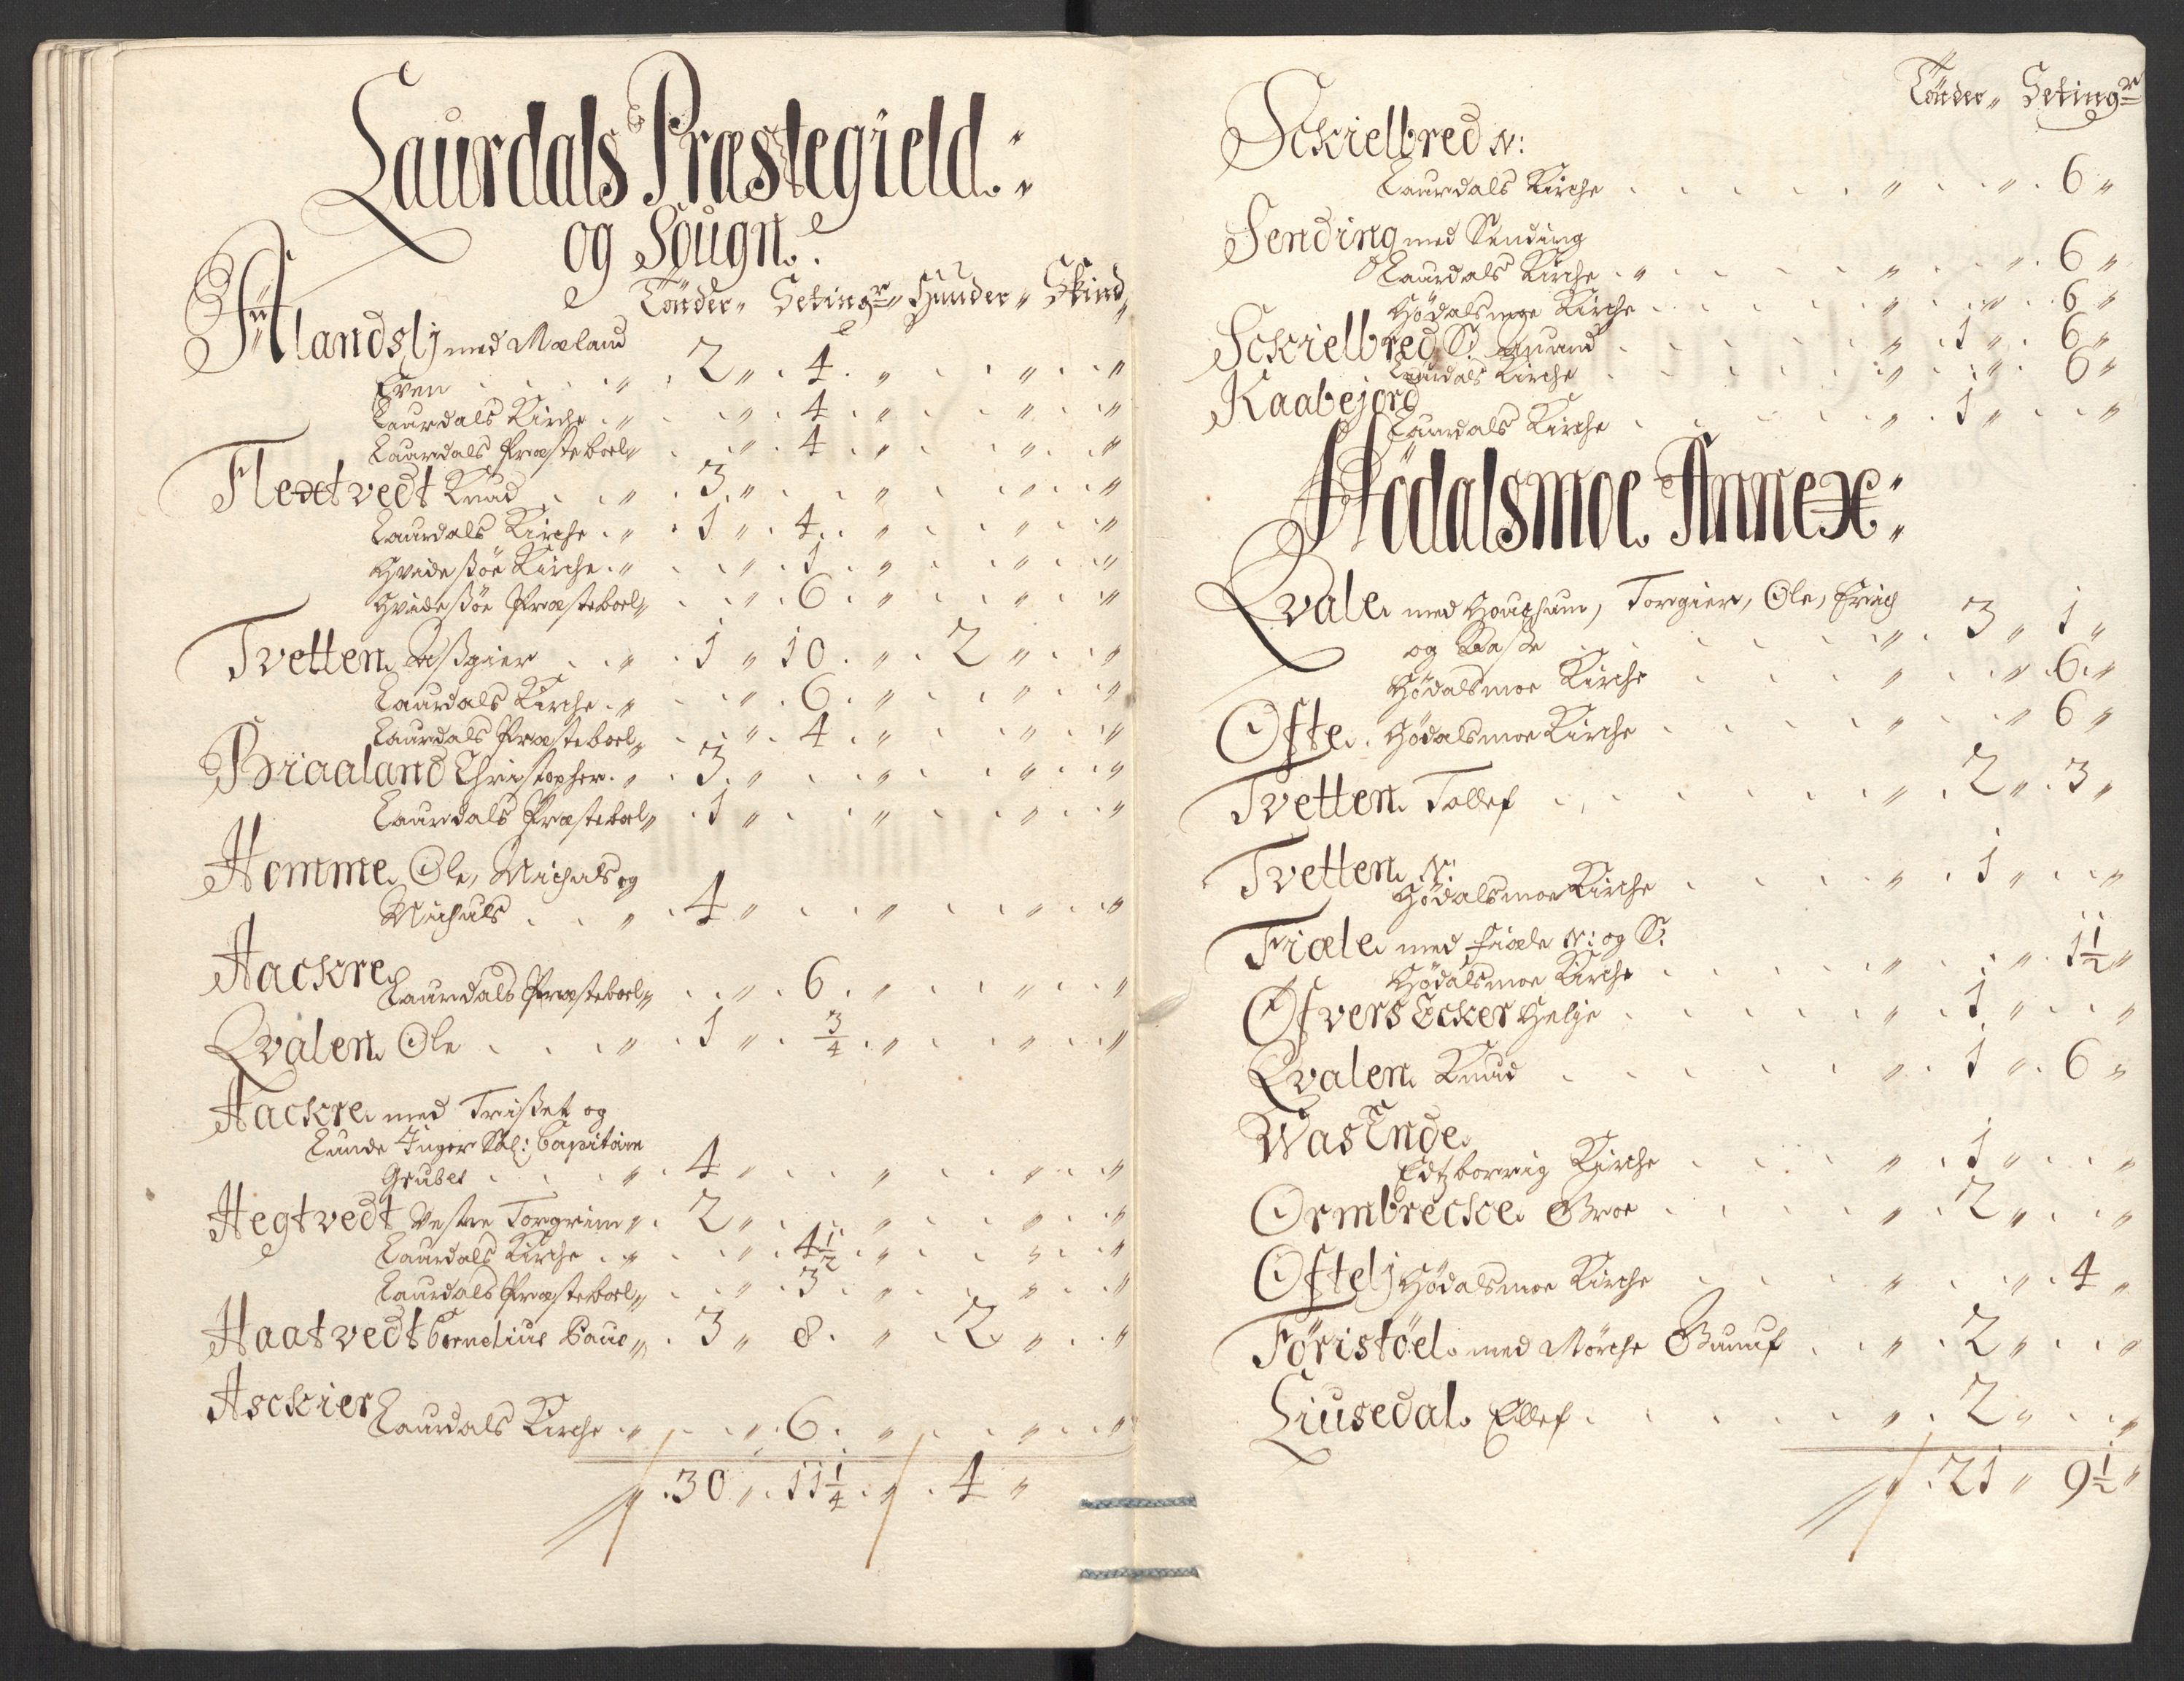 Laurdals Præstegield.
og Sougn.
Tönder " Seting^r " Huuder " Skind
Aalandslj med Mæland
Even . . . . " . 2 " . 4 . " . . " . . "
Laurdals Kirche . " . . " . 4 . " . . " . . "
Laurdals Præsteboel " . . " . 4 . " . . " . . "
Flextvedt Knud . . " . 3 " . . " . . " . . "
Laurdals Kirche . " . 1 " . 4 . " . . " . . "
Hvidesöe Kirche . " . . " . 1 . " . . " . . "
Hvidesöe Præsteboel " . . " . 6 . " . . " . . "
Tvetten Asgier . . " . 1 " 10 . " . 2 " . . "
Laurdals Kirche . " . . " . 6 . " . . " . . "
Laurdals Præsteboel " . . " . 4 . " . . " . . "
Braaland Christopher . " . 3 " . . " . . " . . "
Laurdals Præsteboel " . 1 " . . " . . " . . "
Homme Ole, Michals og
Michuls . . " . 4 " . . " . . " . . "
Aackre
Laurdals Præsteboel " . . " . 6 . " . . " . . "
Qvalen Ole . . . " . 1 " . 3/4 . " . . " . . "
Aackre med Trisset og
Lunde Inger Sal: Capitain
Grubes . . . " . 4 " . . " . . " . . "
Hegtvedt Vestre Torgrim " . 2 " . . " . . " . . "
Laurdals Kirche . " . . " . 4 1/2 . " . . " . . "
Laurdals Præsteboel " . . " . 3 . " . . " . . "
Haatvedt Cornelius Paus " . 3 " 8 . " . 2 " . . "
Asckier
Laurdals Kirche . " . . " . 6 . " . . " . . "
" . 30 " . 11 1/4 . " . 4 "
Tönder " Seting^r
Sckielbred N:
Laurdals Kirche . . . . . . " . . " . 6 "
Sending med Sending
Laurdals Kirche . " . . . . " . . " . 6 "
Hödalsmoe Kirche . . . . " . . " . 6 "
Sckielbred S: Amund . . . . . " . 1 " . 6 "
Laurdals Kirche . . . . . " . . " . 6 "
Kaabejord
Laurdals Kirche . . . . . " . 1 " . . "
Hödalsmoe Annex:
Qvale med Houshum, Torgier, Ole, Erich
og . . . . . " . 3 " 1 "
Hödalsmoe Kirche . . . . " . . " . 6 "
Ofte . Hödalsmoe Kirche . . . . " . . " 6 "
Tvetten Tollef . . . . . . . " . 2 " . 3 "
Tvetten N:
Hödalsmoe Kirche . . . . " . 1 " . . "
Fiæle med Fiæle N: og S:
Hödalsmoe Kirche . . . . " . . " . 1 1/2 "
Ofvers Ecker Helje . . . . . " . 1 " . . "
Qvalen Knud . . . . . . " . 1 " . 6 "
WasEnde
Edtzborrig Kirche . . . . " . 1 " . . "
Ormbrecke Groe . . . . . " . 2 " . . "
Oftelj Hödalsmoe Kirche . . . " . . " . 4 "
Föristöel . med Mörche Gunuf . . " . 2 " . . "
Liusedal . Ellef . . . . . . " . 2 " . . "
" . 21 " 9 1/2 "